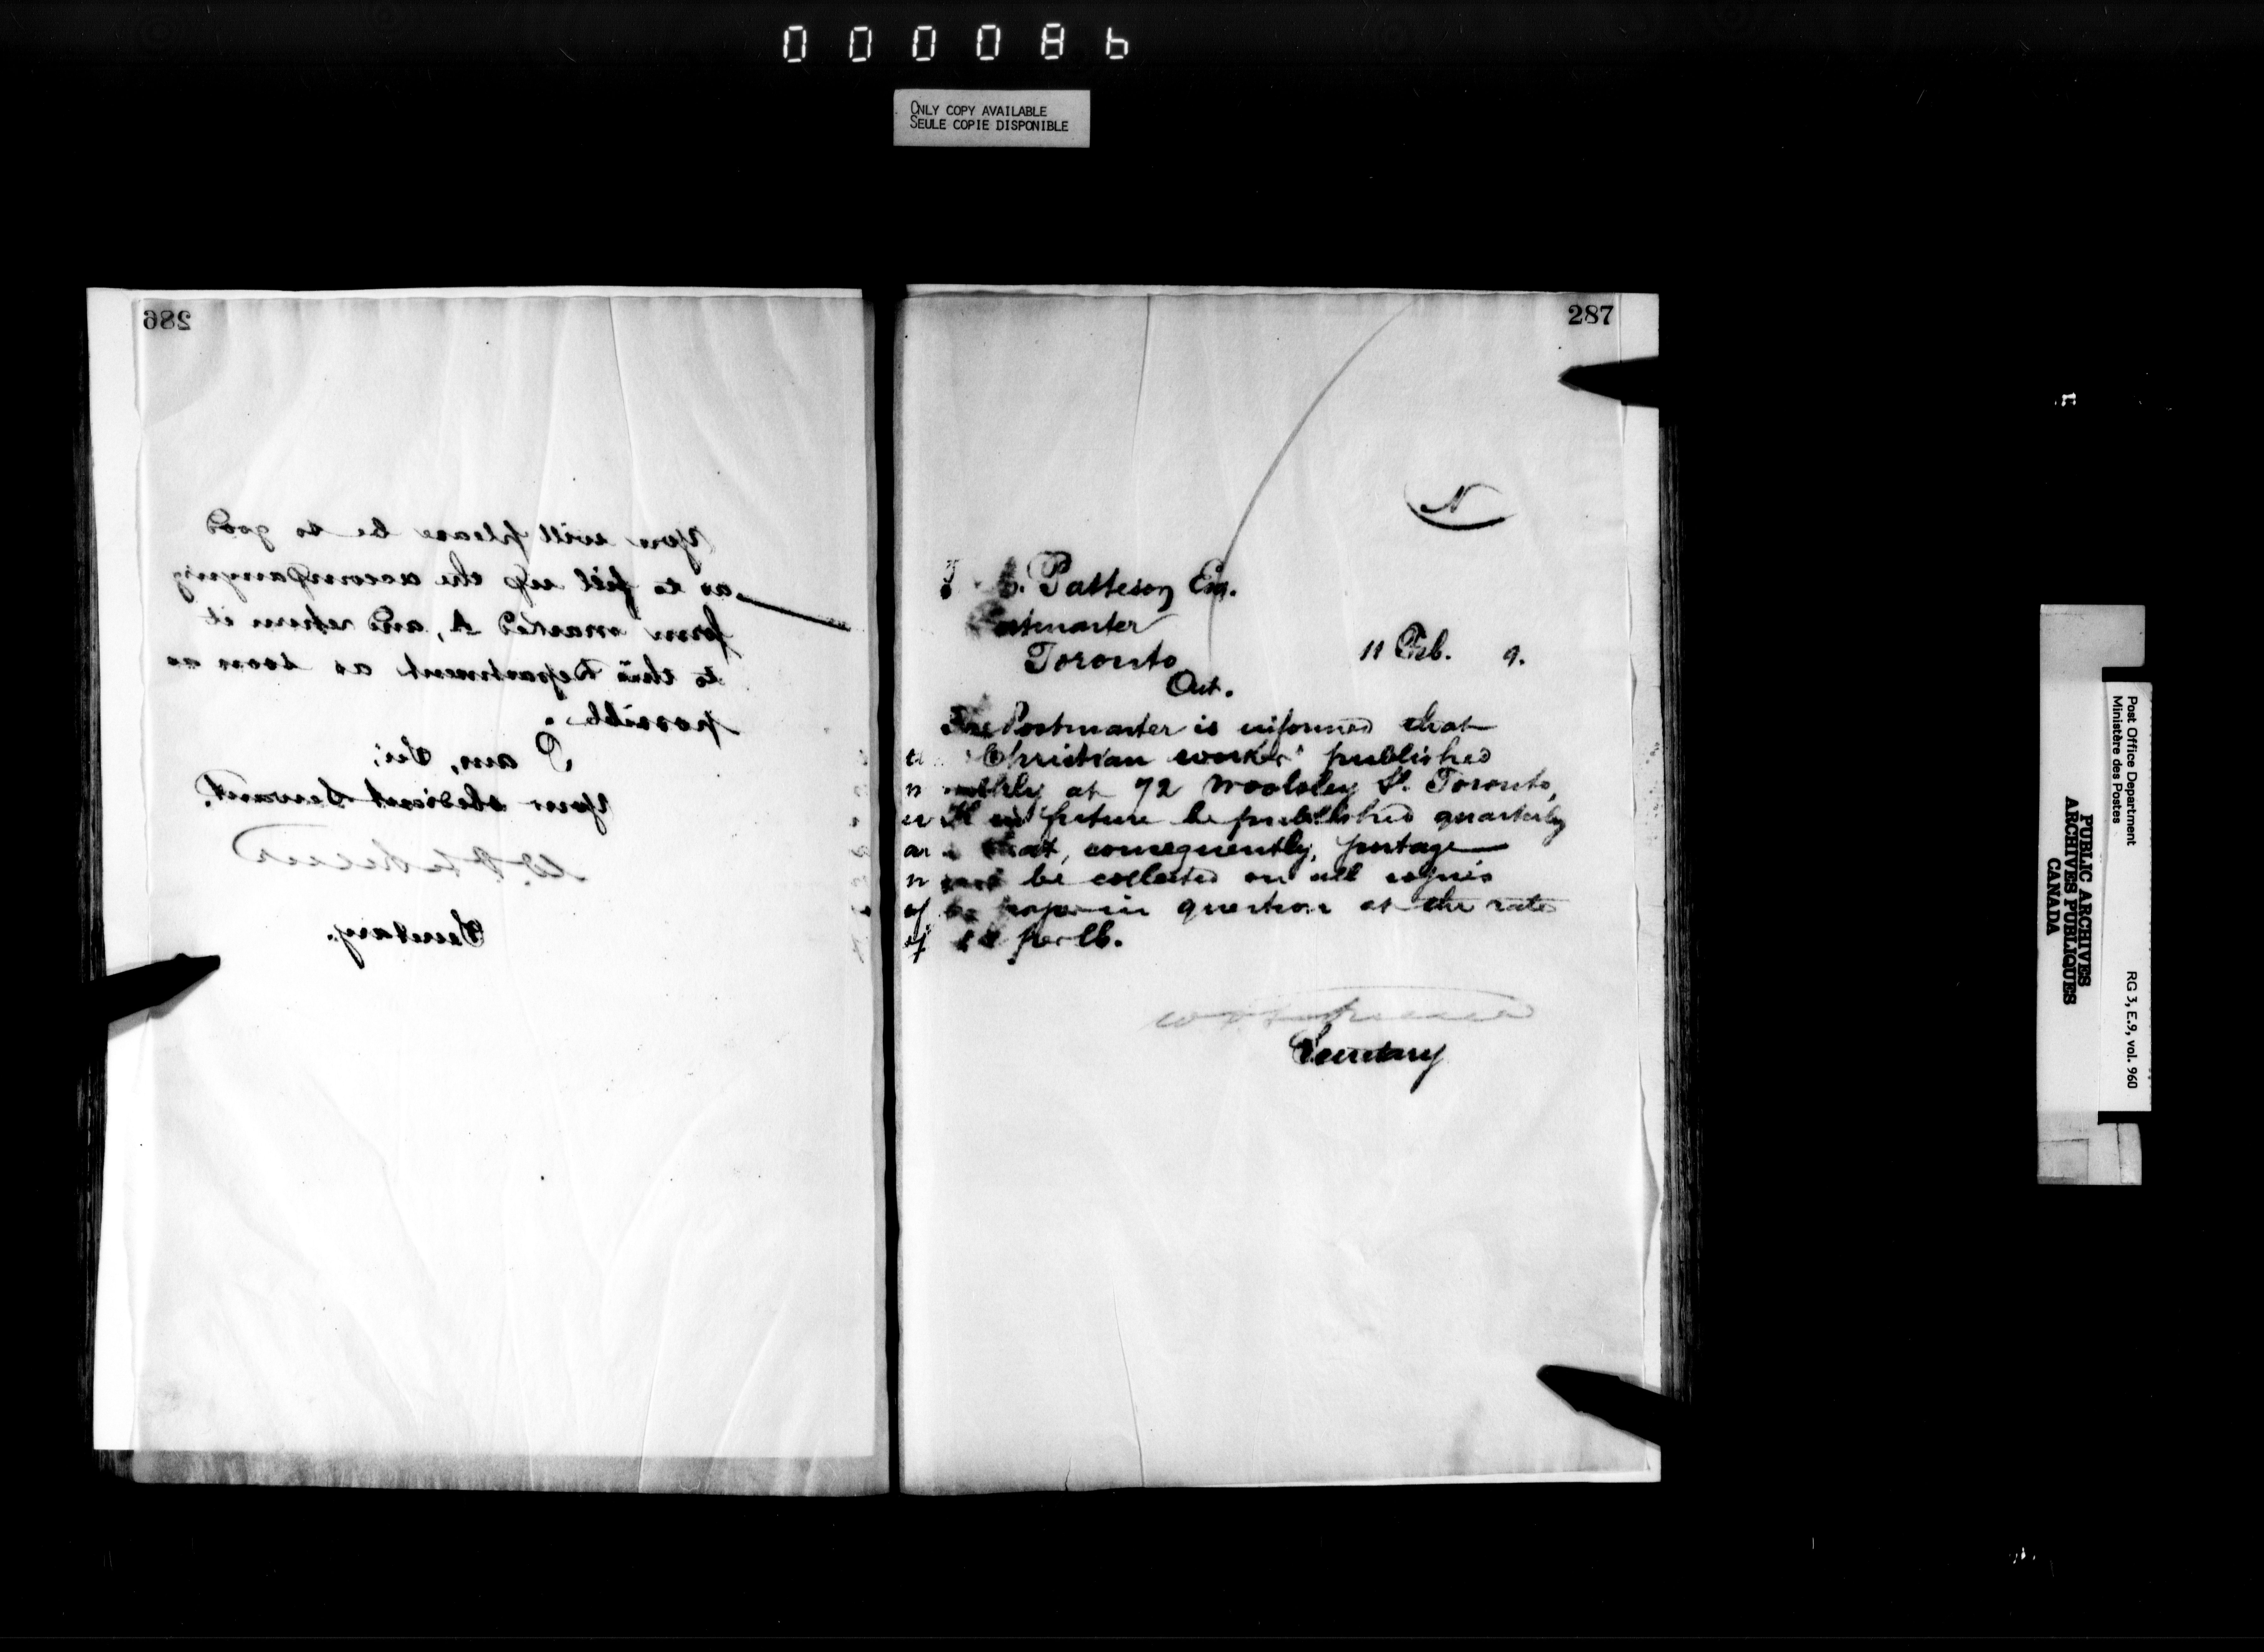 000086
ONLY COPY AVAILABLE
SEULE COPIE DISPONIBLE
286
You will please be so good
as to fill up the accompanying
form marked A, and return it
to this Department as soon as
possible.
I am, Sir,
Your obedient Servant,
Secretary.
287
N
Patteson Esq.
Postmaster
Toronto
Ont.
11 Feb. 9.
The Postmaster is informed that
the "Christian worker" published
monthly at 72 Woolsley St. Toronto,
will in future be published quarterly
and that, consequently, postage
must be collected on all copies
of the paper in question at the rate
of per lb.
Secretary
Post Office Department
Ministère des Postes
RG 3, E.9, vol. 960
PUBLIC ARCHIVES
ARCHIVES PUBLIQUES
CANADA